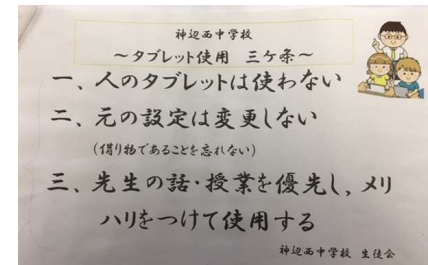 神辺西中学校
～タブレット使用 三ケ条～
一、人のタブレットは使わない
二、元の設定は変更しない
(借り物であることを忘れない)
三、先生の話・授業を優先し，メリ
ハリをつけて使用する
神辺西中学校 生徒会